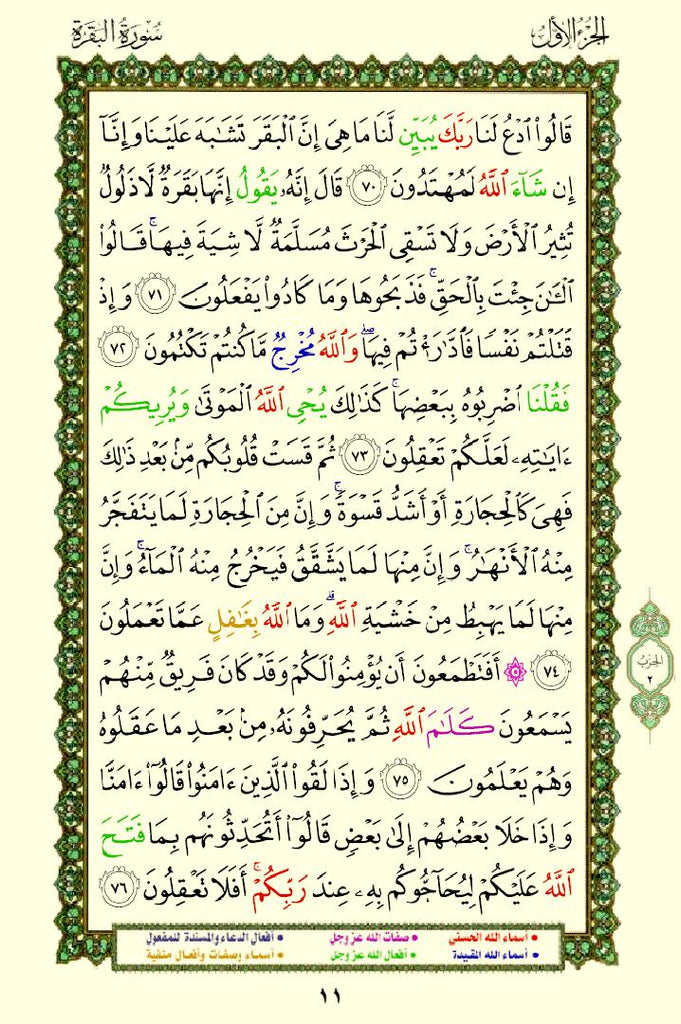 الجزء الأول
سورة البقرة
قَالُوا۟ ٱدْعُ لَنَا رَبَّكَ يُبَيِّن لَّنَا مَا هِىَ إِنَّ ٱلْبَقَرَ تَشَـٰبَهَ عَلَيْنَا وَإِنَّآ
إِن شَآءَ ٱللَّهُ لَمُهْتَدُونَ ٧٠ قَالَ إِنَّهُۥ يَقُولُ إِنَّهَا بَقَرَةٌ لَّا ذَلُولٌ
تُثِيرُ ٱلْأَرْضَ وَلَا تَسْقِى ٱلْحَرْثَ مُسَلَّمَةٌ لَّا شِيَةَ فِيهَا ۚ قَالُوا۟
ٱلْـَٔـٰنَ جِئْتَ بِٱلْحَقِّ ۚ فَذَبَحُوهَا وَمَا كَادُوا۟ يَفْعَلُونَ ٧١ وَإِذْ
قَتَلْتُمْ نَفْسًا فَٱدَّٰرَْٰٔتُمْ فِيهَا ۖ وَٱللَّهُ مُخْرِجٌ مَّا كُنتُمْ تَكْتُمُونَ ٧٢
فَقُلْنَا ٱضْرِبُوهُ بِبَعْضِهَا ۚ كَذَٰلِكَ يُحْىِ ٱللَّهُ ٱلْمَوْتَىٰ وَيُرِيكُمْ
ءَايَـٰتِهِۦ لَعَلَّكُمْ تَعْقِلُونَ ٧٣ ثُمَّ قَسَتْ قُلُوبُكُم مِّنۢ بَعْدِ ذَٰلِكَ
فَهِىَ كَٱلْحِجَارَةِ أَوْ أَشَدُّ قَسْوَةً ۚ وَإِنَّ مِنَ ٱلْحِجَارَةِ لَمَا يَتَفَجَّرُ
مِنْهُ ٱلْأَنْهَـٰرُ ۚ وَإِنَّ مِنْهَا لَمَا يَشَّقَّقُ فَيَخْرُجُ مِنْهُ ٱلْمَآءُ ۚ وَإِنَّ
مِنْهَا لَمَا يَهْبِطُ مِنْ خَشْيَةِ ٱللَّهِ ۗ وَمَا ٱللَّهُ بِغَـٰفِلٍ عَمَّا تَعْمَلُونَ
٧٤ ۞ أَفَتَطْمَعُونَ أَن يُؤْمِنُوا۟ لَكُمْ وَقَدْ كَانَ فَرِيقٌ مِّنْهُمْ
يَسْمَعُونَ كَلَـٰمَ ٱللَّهِ ثُمَّ يُحَرِّفُونَهُۥ مِنۢ بَعْدِ مَا عَقَلُوهُ
وَهُمْ يَعْلَمُونَ ٧٥ وَإِذَا لَقُوا۟ ٱلَّذِينَ ءَامَنُوا۟ قَالُوٓا۟ ءَامَنَّا
وَإِذَا خَلَا بَعْضُهُمْ إِلَىٰ بَعْضٍ قَالُوٓا۟ أَتُحَدِّثُونَهُم بِمَا فَتَحَ
ٱللَّهُ عَلَيْكُمْ لِيُحَآجُّوكُم بِهِۦ عِندَ رَبِّكُمْ ۚ أَفَلَا تَعْقِلُونَ ٧٦
الحزب
٢
• أسماء الله الحسنى • صفات الله عز وجل • أفعال الدعاء والمسندة للمفعول
• أسماء الله المقيدة • أفعال الله عز وجل • أسماء وصفات وأفعال منفية
١١